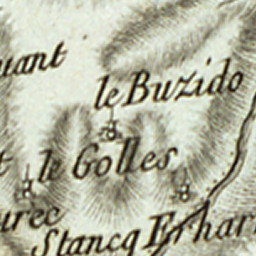 uant
le Buzido
le Golles
urec
Stancq Erhar